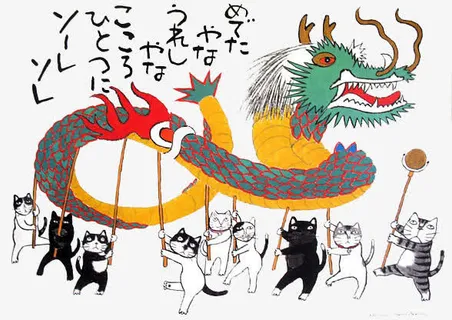 めでた
やな
うれし
やな
こころ
ひとつに
ソーレ
ソレ